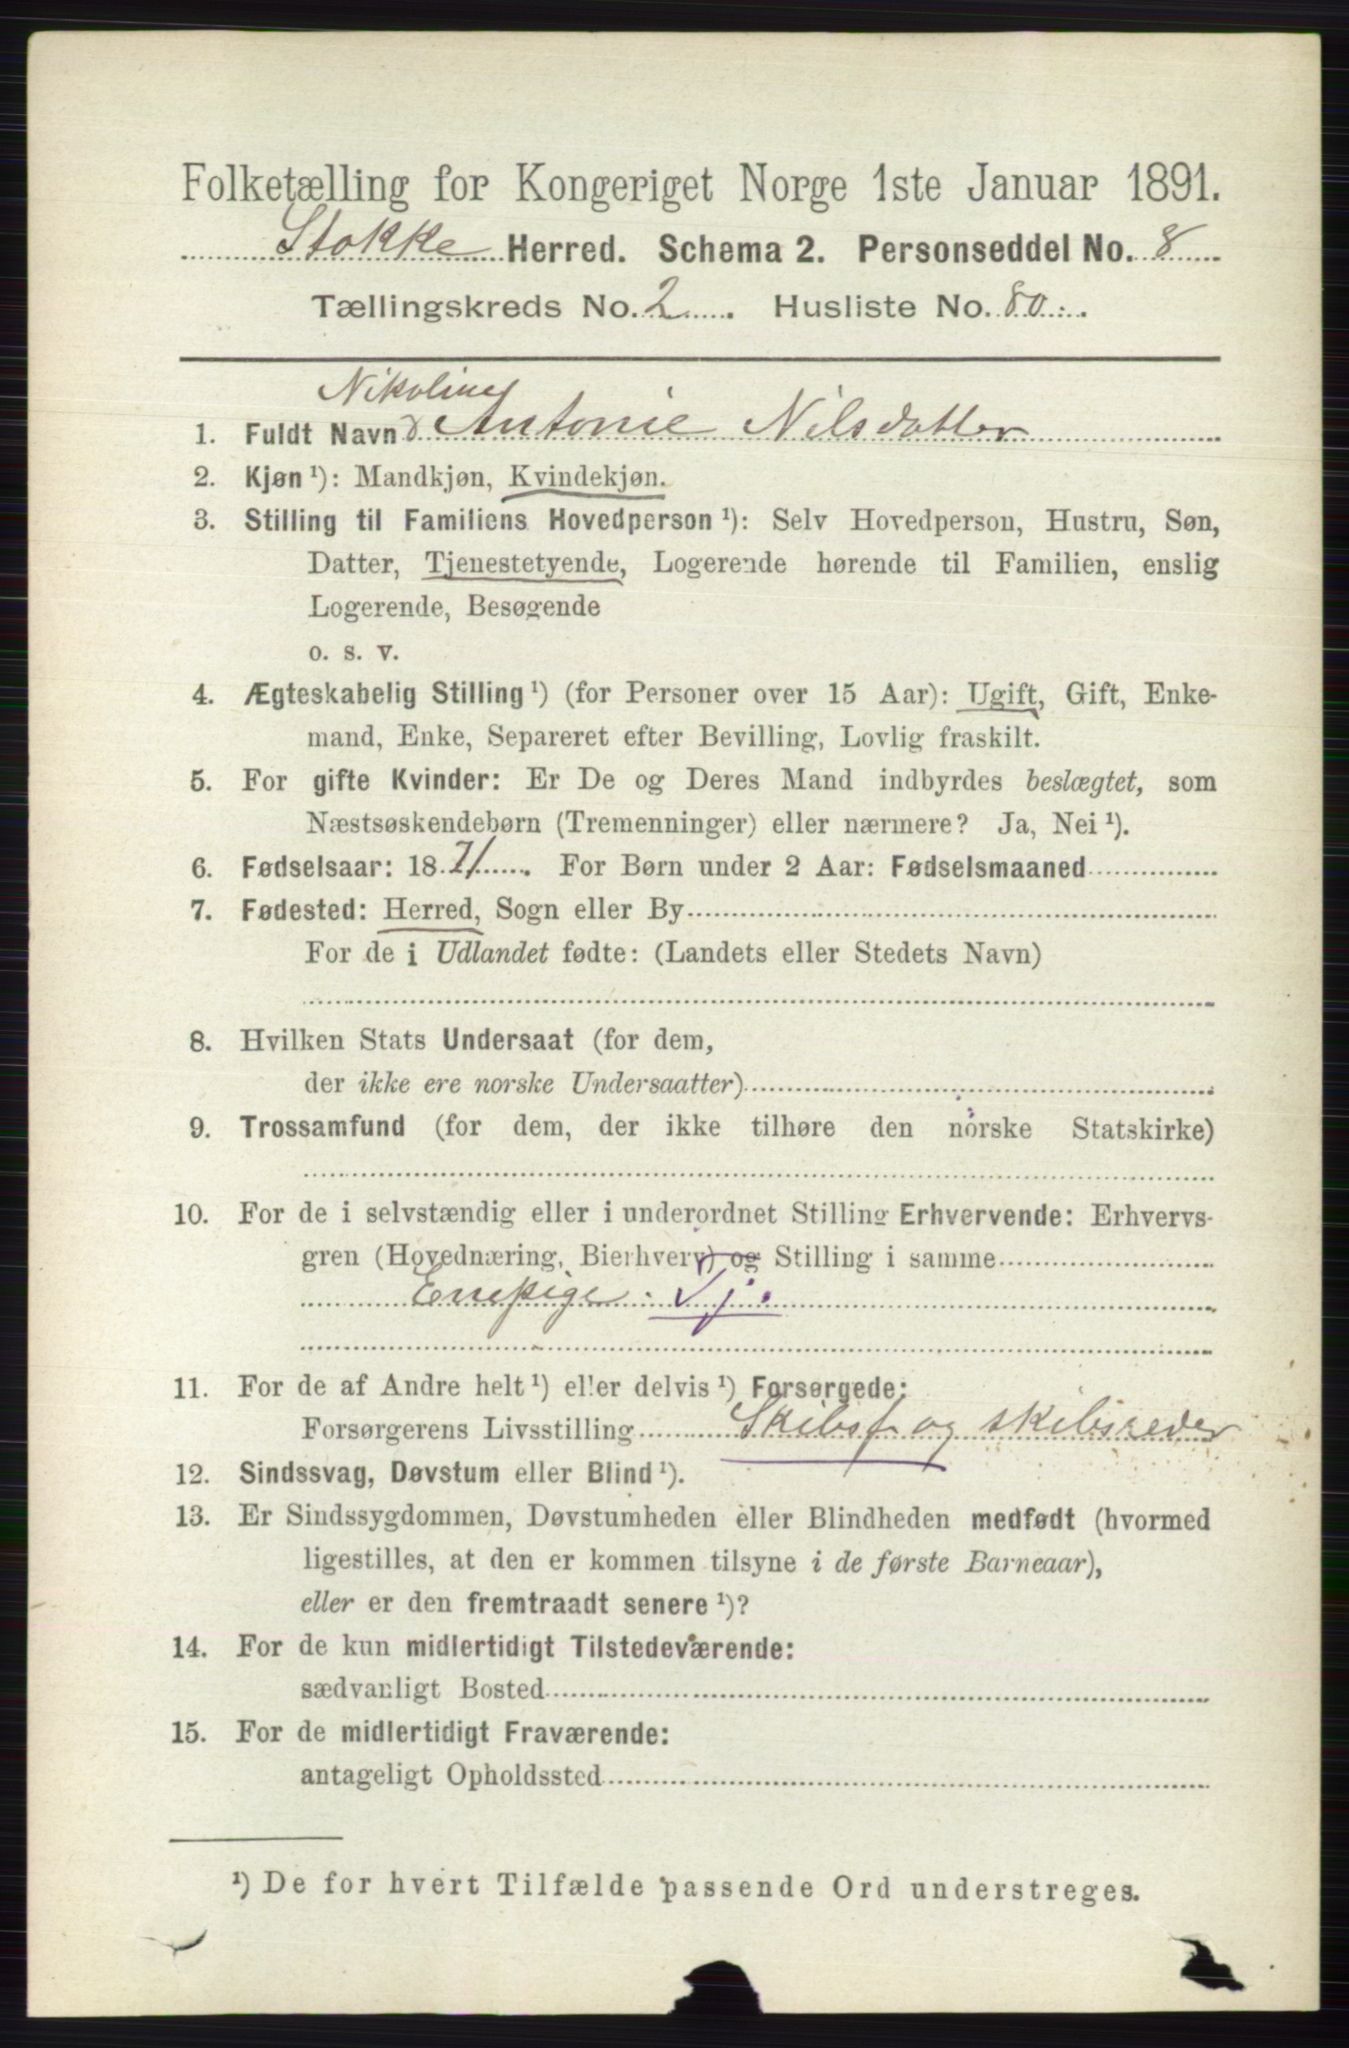 Folketælling for Kongeriget Norge 1ste Januar 1891.
Stokke Herred. Schema 2. Personseddel No. 8
Tællingskreds No. 2. Husliste No. 80.
Nikoline
1. Fuldt Navn Antonie Nilsdatter
2. Kjøn ¹): Mandkjøn, Kvindekjøn.
3. Stilling til Familiens Hovedperson ¹): Selv Hovedperson, Hustru, Søn,
Datter, Tjenestetyende, Logerende hørende til Familien, enslig
Logerende, Besøgende
o. s. v.
4. Ægteskabelig Stilling ¹) (for Personer over 15 Aar): Ugift, Gift, Enke-
mand, Enke, Separeret efter Bevilling, Lovlig fraskilt.
5. For gifte Kvinder: Er De og Deres Mand indbyrdes beslægtet, som
Næstsøskendebørn (Tremenninger) eller nærmere? Ja, Nei ¹).
6. Fødselsaar: 1871. For Børn under 2 Aar: Fødselsmaaned
7. Fødested: Herred, Sogn eller By
For de i Udlandet fødte: (Landets eller Stedets Navn)
8. Hvilken Stats Undersaat (for dem,
der ikke ere norske Undersaatter)
9. Trossamfund (for dem, der ikke tilhøre den norske Statskirke)
10. For de i selvstændig eller i underordnet Stilling Erhvervende: Erhvervs-
gren (Hovednæring, Bierhverv) og Stilling i samme
Enepige. Tj.
11. For de af Andre helt ¹) eller delvis ¹) Forsørgede:
Forsørgerens Livsstilling Skibsf og skibsreder
12. Sindssvag, Døvstum eller Blind ¹).
13. Er Sindssygdommen, Døvstumheden eller Blindheden medfødt (hvormed
ligestilles, at den er kommen tilsyne i de første Barneaar),
eller er den fremtraadt senere ¹)?
14. For de kun midlertidigt Tilstedeværende:
sædvanligt Bosted
15. For de midlertidigt Fraværende:
antageligt Opholdssted
¹) De for hvert Tilfælde passende Ord understreges.